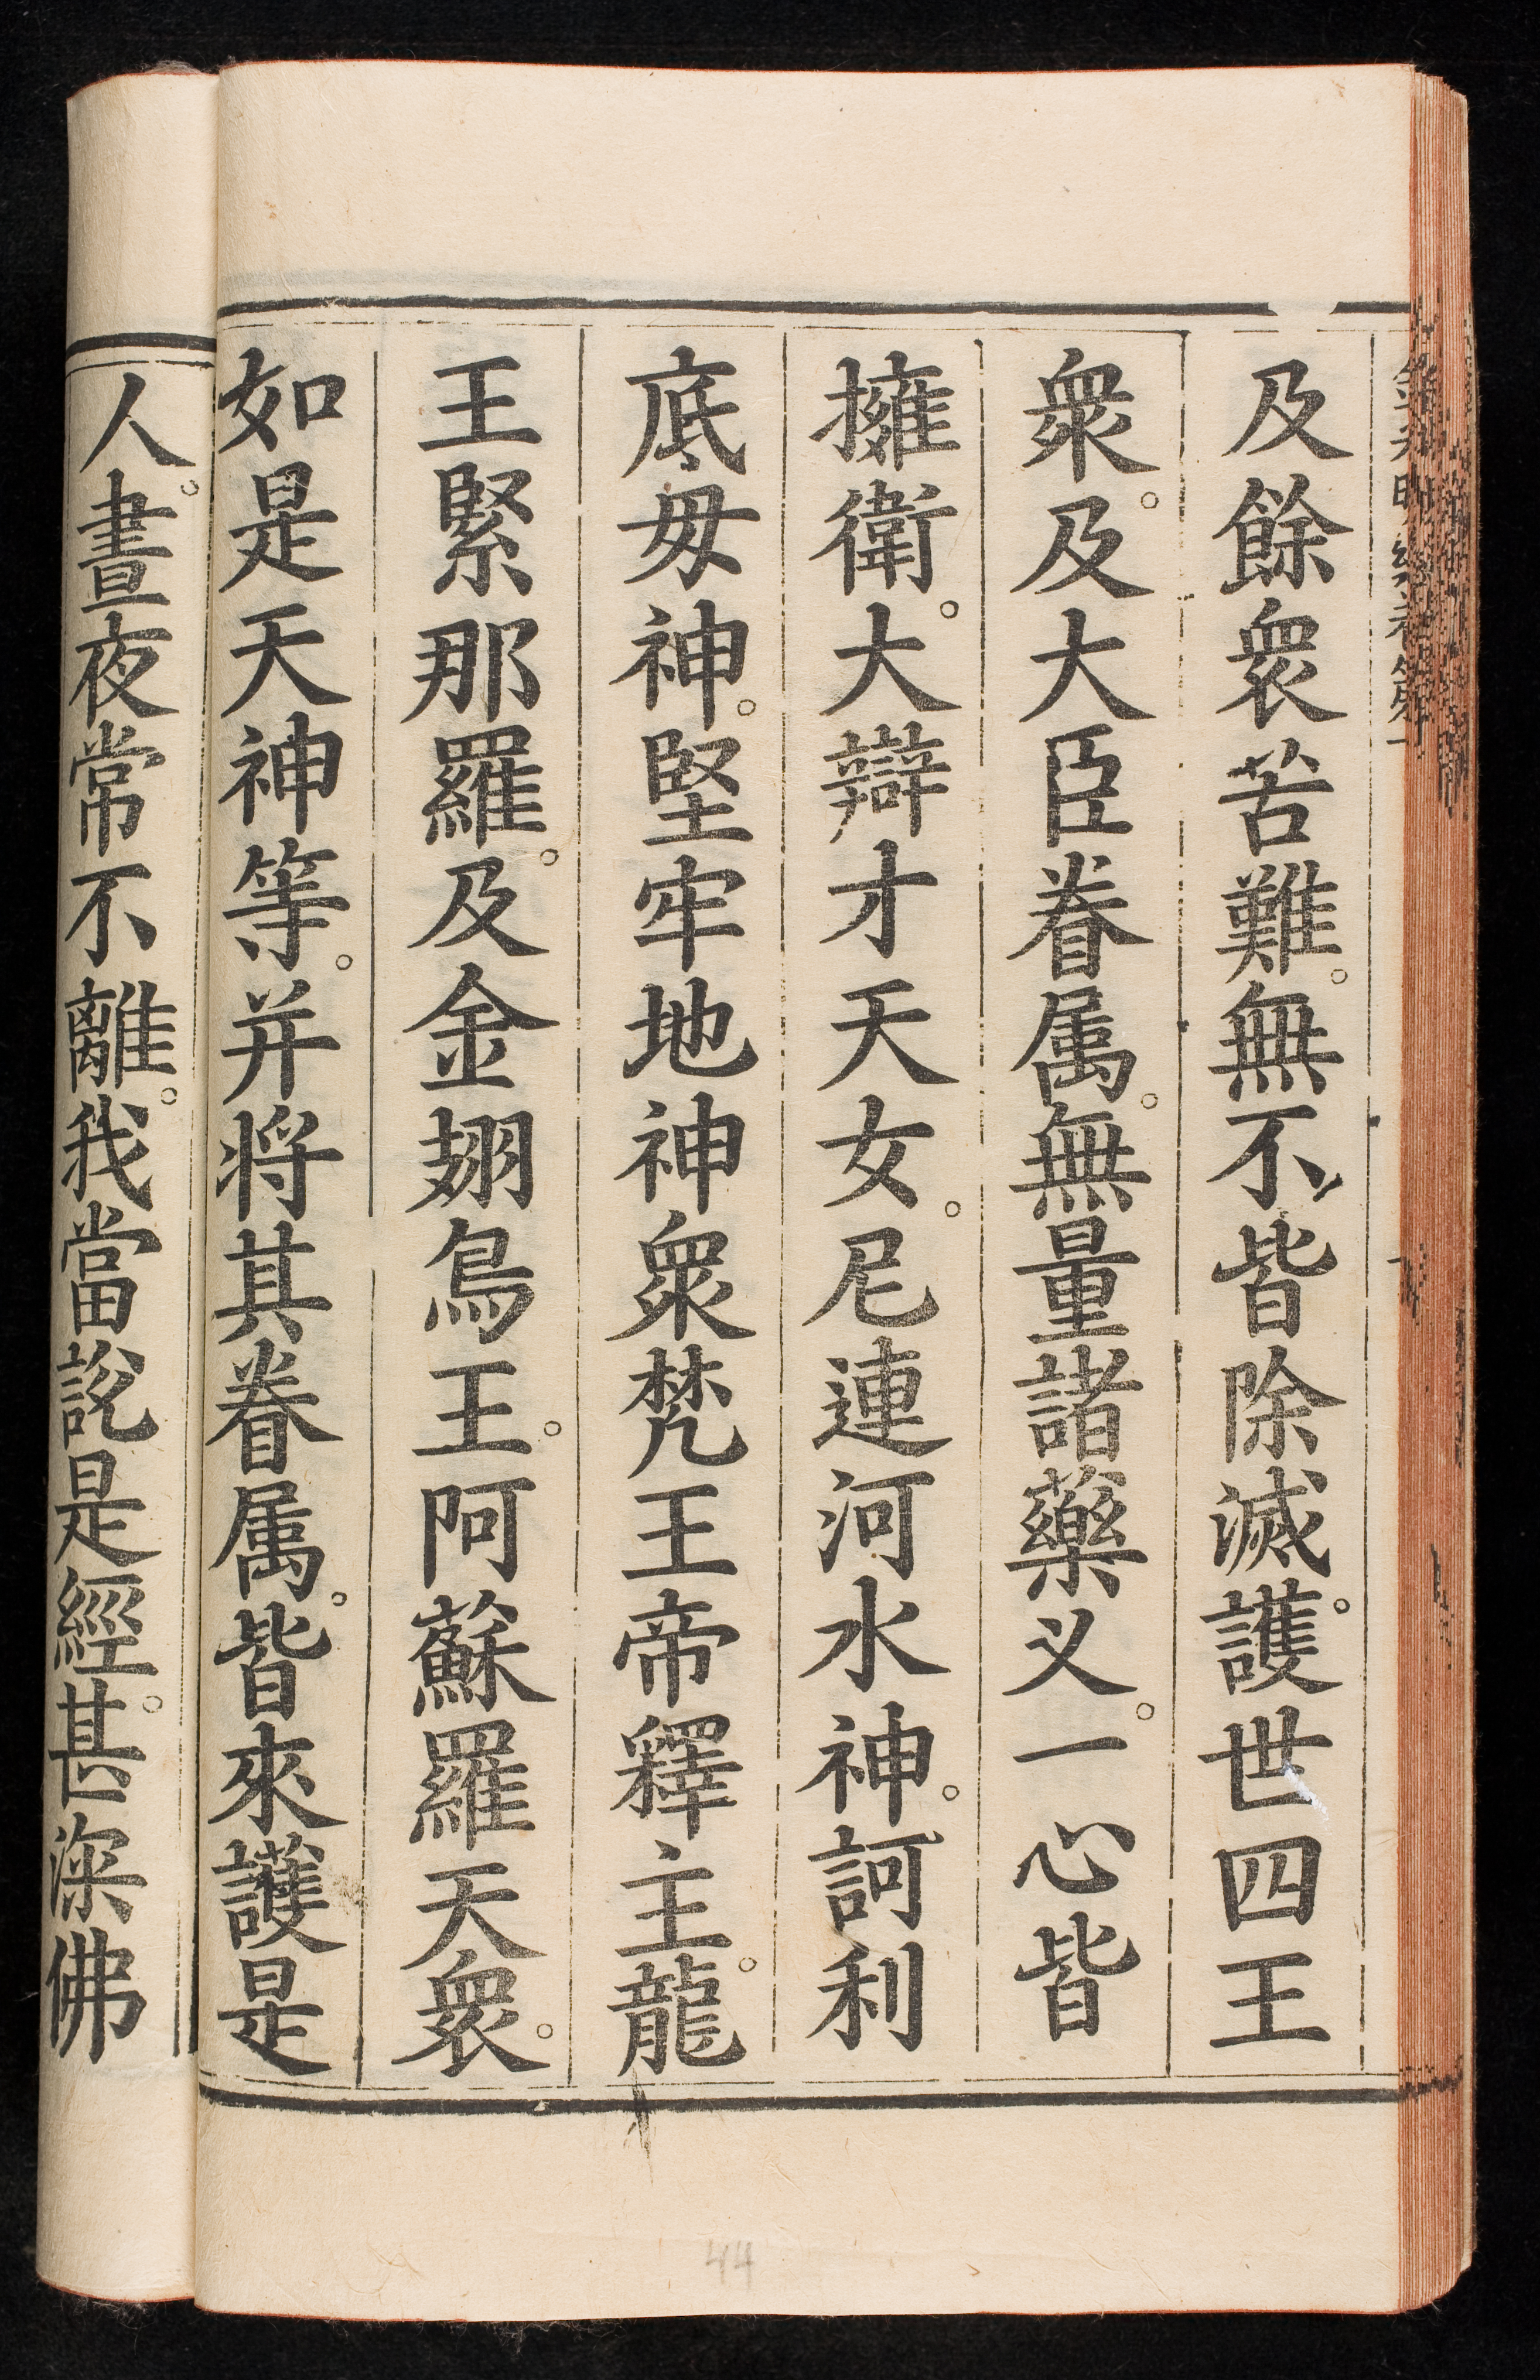 及餘衆苦難。無不皆除滅。護世四王
衆。及大臣眷属。無量諸藥义。一心皆
擁衛。大辯才天女。尼連河水神。訶利
底母神。堅牢地神衆梵王帝釋主。龍
王緊那羅。及金翅鳥王。阿蘇羅天衆。
如是天神等。并將其眷属。皆來護是
人。晝夜常不離。我當說是經。甚深佛
44